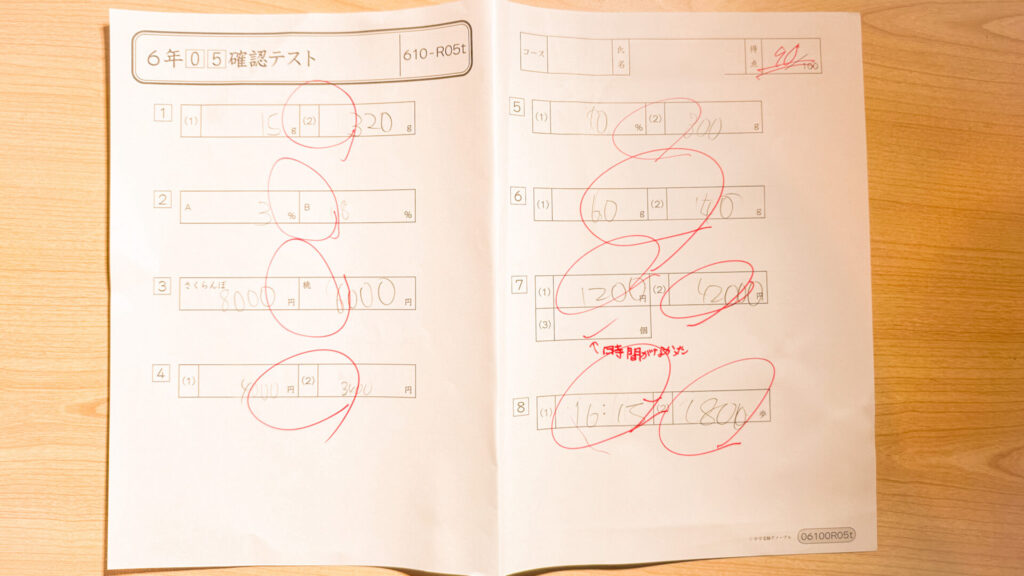 6年05確認テスト
610-R05t
1 (1) 15 g (2) 320 g
2 A 3 % B %
3 さくらんぼ 8000 円 桃 6000 円
4 (1) 円 (2) 円
コース 氏名 得点 90 100
5 (1) 10 % (2) 200 g
6 (1) 60 g (2) g
7 (1) 1200 円 (2) 42000 円
(3) 個
↑時間がなかった
8 (1) 16:15 (2) 1800 歩
06100R05t